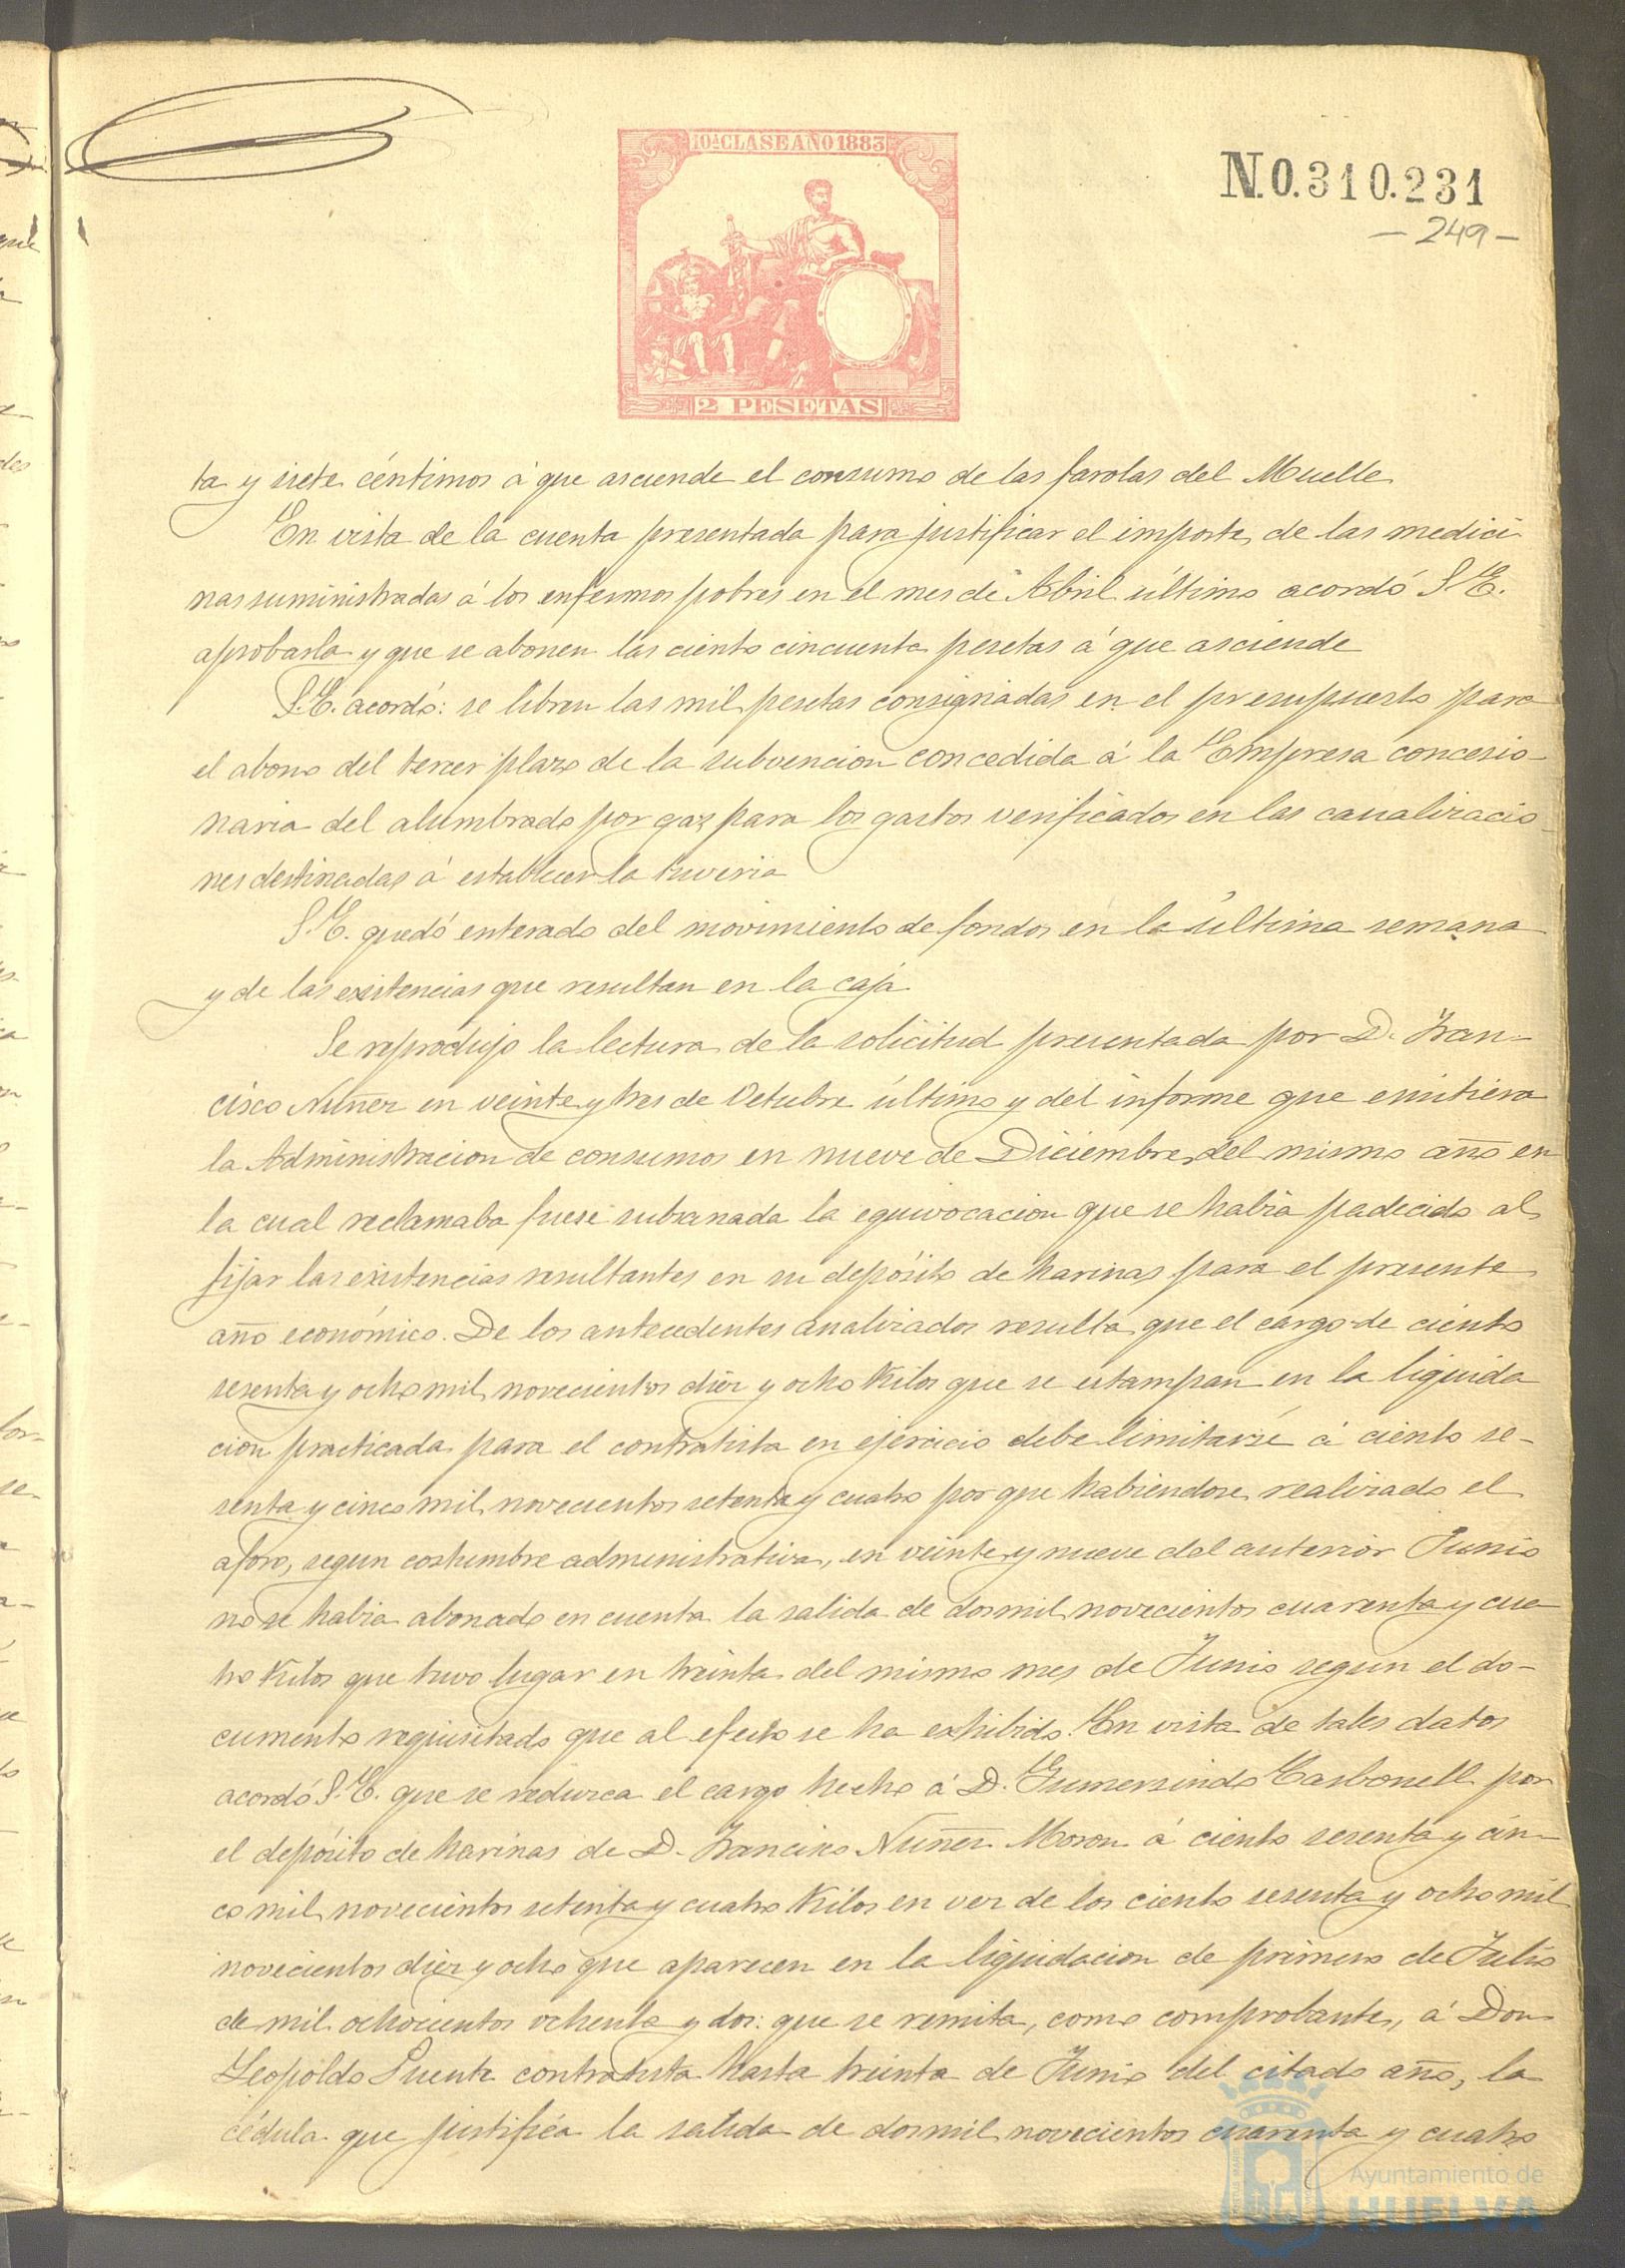 10ª CLASE AÑO 1883
N.0.310.231
- 249 -
2 PESETAS
ta y siete céntimos á que asciende el consumo de las farolas del Muelle
En vista de la cuenta presentada para justificar el importe de las medici
nas suministradas á los enfermos pobres en el mes de Abril último acordó S. E.
aprobarla y que se abonen las ciento cincuenta pesetas á que asciende
S. E. acordó: se libren las mil pesetas consignadas en el presupuesto para
el abono del tercer plazo de la subvencion concedida á la Empresa concesio-
naria del alumbrado por gaz para los gastos verificados en las canalizacio-
nes destinadas á establecer la tuveria
S. E. quedó enterado del movimiento de fondos en la última semana
y de las existencias que resultan en la caja
Se reprodujo la lectura de la solicitud presentada por D. Fran-
cisco Nuñez en veinte y tres de Octubre último y del informe que emitiera
la Administracion de consumos en nueve de Diciembre del mismo año en
la cual reclamaba fuese subsanada la equivocacion que se habia padecido al
fijar las existencias resultantes en su depósito de harinas para el presente
año económico. De los antecedentes analizados resulta que el cargo de ciento
sesenta y ocho mil novecientos diez y ocho Kilos que se estampan en la liquida
cion practicada para el contratista en ejercicio debe limitarse á ciento se-
senta y cinco mil novecientos setenta y cuatro por que habiendose realizado el
aforo, segun costumbre administrativa, en veinte y nueve del anterior Junio
no se habia abonado en cuenta la salida de dos mil novecientos cuarenta y cua
tro Kilos que tuvo lugar en treinta del mismo mes de Junio segun el do-
cumento requisitado que al efecto se ha exhibido. En vista de tales datos
acordó S. E. que se reduzca el cargo hecho á D. Gumersindo Carbonell por
el depósito de harinas de D. Francisco Nuñez Moron á ciento sesenta y cin-
co mil novecientos setenta y cuatro Kilos en vez de los ciento sesenta y ocho mil
novecientos diez y ocho que aparecen en la liquidacion de primero de Julio
de mil ochocientos ochenta y dos: que se remita, como comprobante, á Don
Leopoldo Puente contratista hasta treinta de Junio del citado año, la
cédula que justifica la salida de dos mil novecientos cuarenta y cuatro
Ayuntamiento de
HUELVA